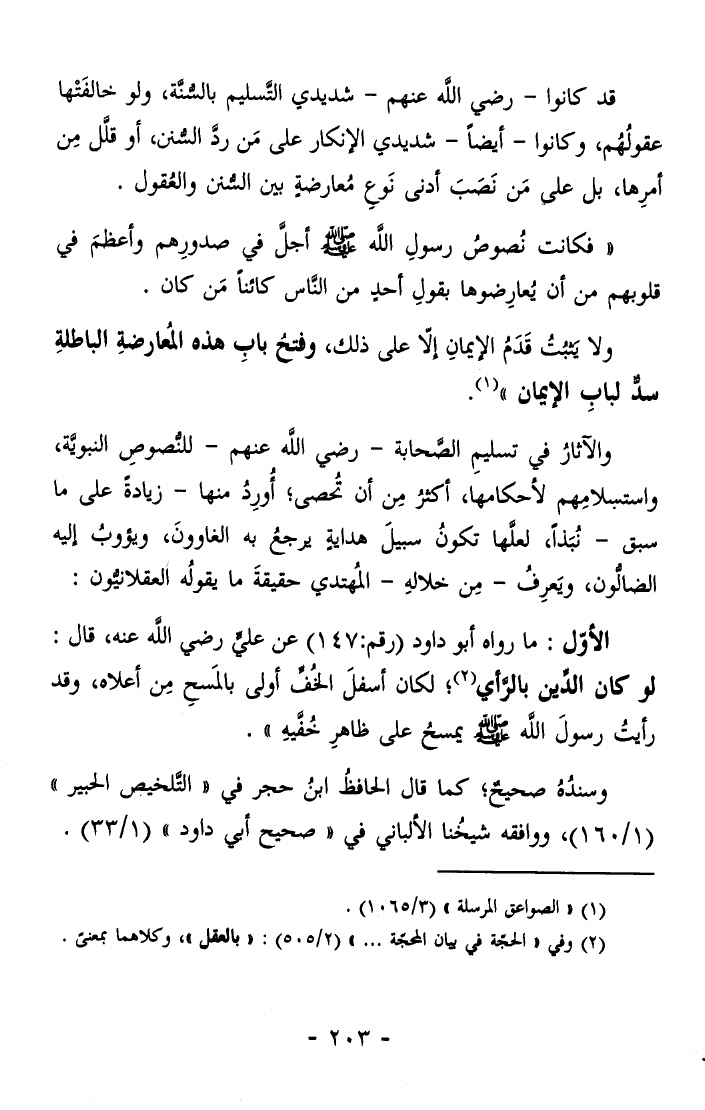 قد كانوا - رضي اللَّه عنهم - شديدي التَّسليم بالسُّنَّة، ولو خالفَتْها
عقولُهُم، وكانوا - أيضاً - شديدي الإنكار على مَن ردَّ السُّنن، أو قلَّل مِن
أمرِها، بل على مَن نَصَبَ أدنى نَوعِ مُعارضةٍ بين السُّنن والعُقول .
« فكانت نُصوصُ رسولِ اللَّه ﷺ أجلَّ في صدورِهم وأعظمَ في
قلوبهم من أن يُعارِضوها بقولِ أحدٍ من النَّاس كائناً مَن كان .
ولا يَثبُتُ قَدَمُ الإيمانِ إلّا على ذلك، وفتحُ بابِ هذه المُعارضةِ الباطلةِ
سدٌّ لبابِ الإيمان »(١).
والآثارُ في تسليمِ الصَّحابة - رضي اللَّه عنهم - للنُّصوصِ النبويَّة،
واستسلامِهم لأحكامها، أكثرُ مِن أن تُحصى؛ أُورِدُ منها - زيادةً على ما
سبق - نُبَذاً، لعلَّها تكونُ سبيلَ هدايةٍ يرجعُ به الغاوونَ، ويؤوبُ إليه
الضالُّون، ويَعرِفُ - مِن خلالهِ - المُهتدي حقيقةَ ما يقولُه العقلانيُّون :
الأوّل : ما رواه أبو داود (رقم:١٤٧) عن عليٍّ رضي اللَّه عنه، قال :
لو كان الدِّين بالرَّأي(٢)؛ لكان أسفلَ الخُفِّ أولى بالمَسحِ مِن أعلاه، وقد
رأيتُ رسولَ اللَّه ﷺ يمسحُ على ظاهرِ خُفَّيهِ » .
وسندُهُ صحيحٌ؛ كما قال الحافظُ ابنُ حجر في « التَّلخيص الحبير »
(١/١٦٠)، ووافقه شيخُنا الألباني في « صحيح أبي داود » (٣٣/١) .
(١) « الصواعق المرسلة » (١٠٦٥/٣) .
(٢) وفي « الحجّة في بيان المحجّة ... » (٥٠٥/٢) : « بالعقل »، وكلاهما بمعنىً .
- ٢٠٣ -